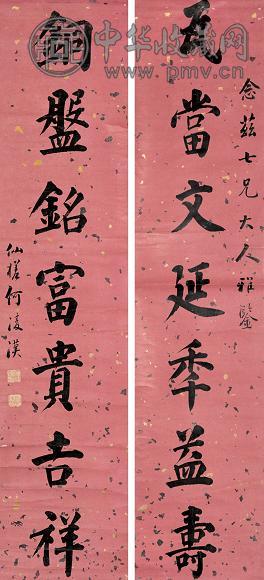 中华收藏网
www.pmv.cn
念茲七兄大人雅鑒
瓦當文延秊益壽
銅盤銘富貴吉祥
仙槎何淩漢